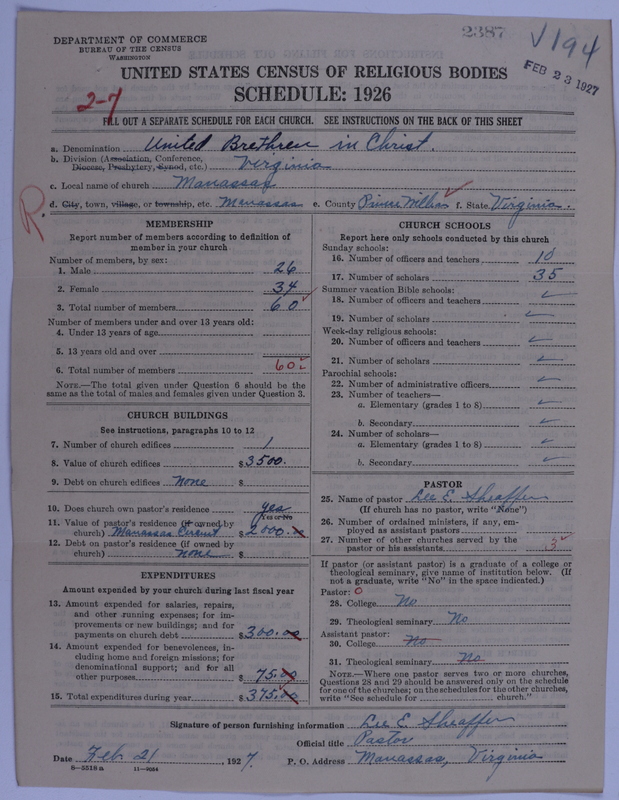 2387
V194
FEB 23 1927
DEPARTMENT OF COMMERCE
BUREAU OF THE CENSUS
WASHINGTON
UNITED STATES CENSUS OF RELIGIOUS BODIES
SCHEDULE: 1926
2-7
FILL OUT A SEPARATE SCHEDULE FOR EACH CHURCH. SEE INSTRUCTIONS ON THE BACK OF THIS SHEET
a. Denomination United Brethren in Christ.
b. Division (Association, Conference, Diocese, Presbytery, Synod, etc.) Virginia
c. Local name of church Manassas
d. City, town, village, or township, etc. Manassas e. County Prince William f. State Virginia.
R
MEMBERSHIP
Report number of members according to definition of
member in your church
Number of members, by sex:
1. Male 26
2. Female 34
3. Total number of members 60
Number of members under and over 13 years old:
4. Under 13 years of age
5. 13 years old and over
6. Total number of members 60
NOTE.—The total given under Question 6 should be the
same as the total of males and females given under Question 3.
CHURCH BUILDINGS
See instructions, paragraphs 10 to 12
7. Number of church edifices 1
8. Value of church edifices $3500.
9. Debt on church edifices none $
10. Does church own pastor's residence yes
Yes or No
11. Value of pastor's residence (if owned by
church) Manassas Circuit $2000.00
12. Debt on pastor's residence (if owned by
church) none $
EXPENDITURES
Amount expended by your church during last fiscal year
13. Amount expended for salaries, repairs,
and other running expenses; for im-
provements or new buildings; and for
payments on church debt $300.00
14. Amount expended for benevolences, in-
cluding home and foreign missions; for
denominational support; and for all
other purposes $75.00
15. Total expenditures during year $375.00
CHURCH SCHOOLS
Report here only schools conducted by this church
Sunday schools:
16. Number of officers and teachers 10
17. Number of scholars 35
Summer vacation Bible schools:
18. Number of officers and teachers
19. Number of scholars
Week-day religious schools:
20. Number of officers and teachers
21. Number of scholars
Parochial schools:
22. Number of administrative officers
23. Number of teachers—
a. Elementary (grades 1 to 8)
b. Secondary
24. Number of scholars—
a. Elementary (grades 1 to 8)
b. Secondary
PASTOR
25. Name of pastor Lee E Sheaffer
(If church has no pastor, write "None")
26. Number of ordained ministers, if any, em-
ployed as assistant pastors
27. Number of other churches served by the
pastor or his assistants 3
If pastor (or assistant pastor) is a graduate of a college or
theological seminary, give name of institution below. (If
not a graduate, write "No" in the space indicated.)
Pastor: O
28. College No
29. Theological seminary No
Assistant pastor:
30. College No
31. Theological seminary No
NOTE.—Where one pastor serves two or more churches,
Questions 28 and 29 should be answered only on the schedule
for one of the churches; on the schedules for the other churches,
write "See schedule for church."
Signature of person furnishing information Lee E Sheaffer
Official title Pastor
Date Feb 21, 1927. P. O. Address Manassas, Virginia
S—5518 a 11—9034